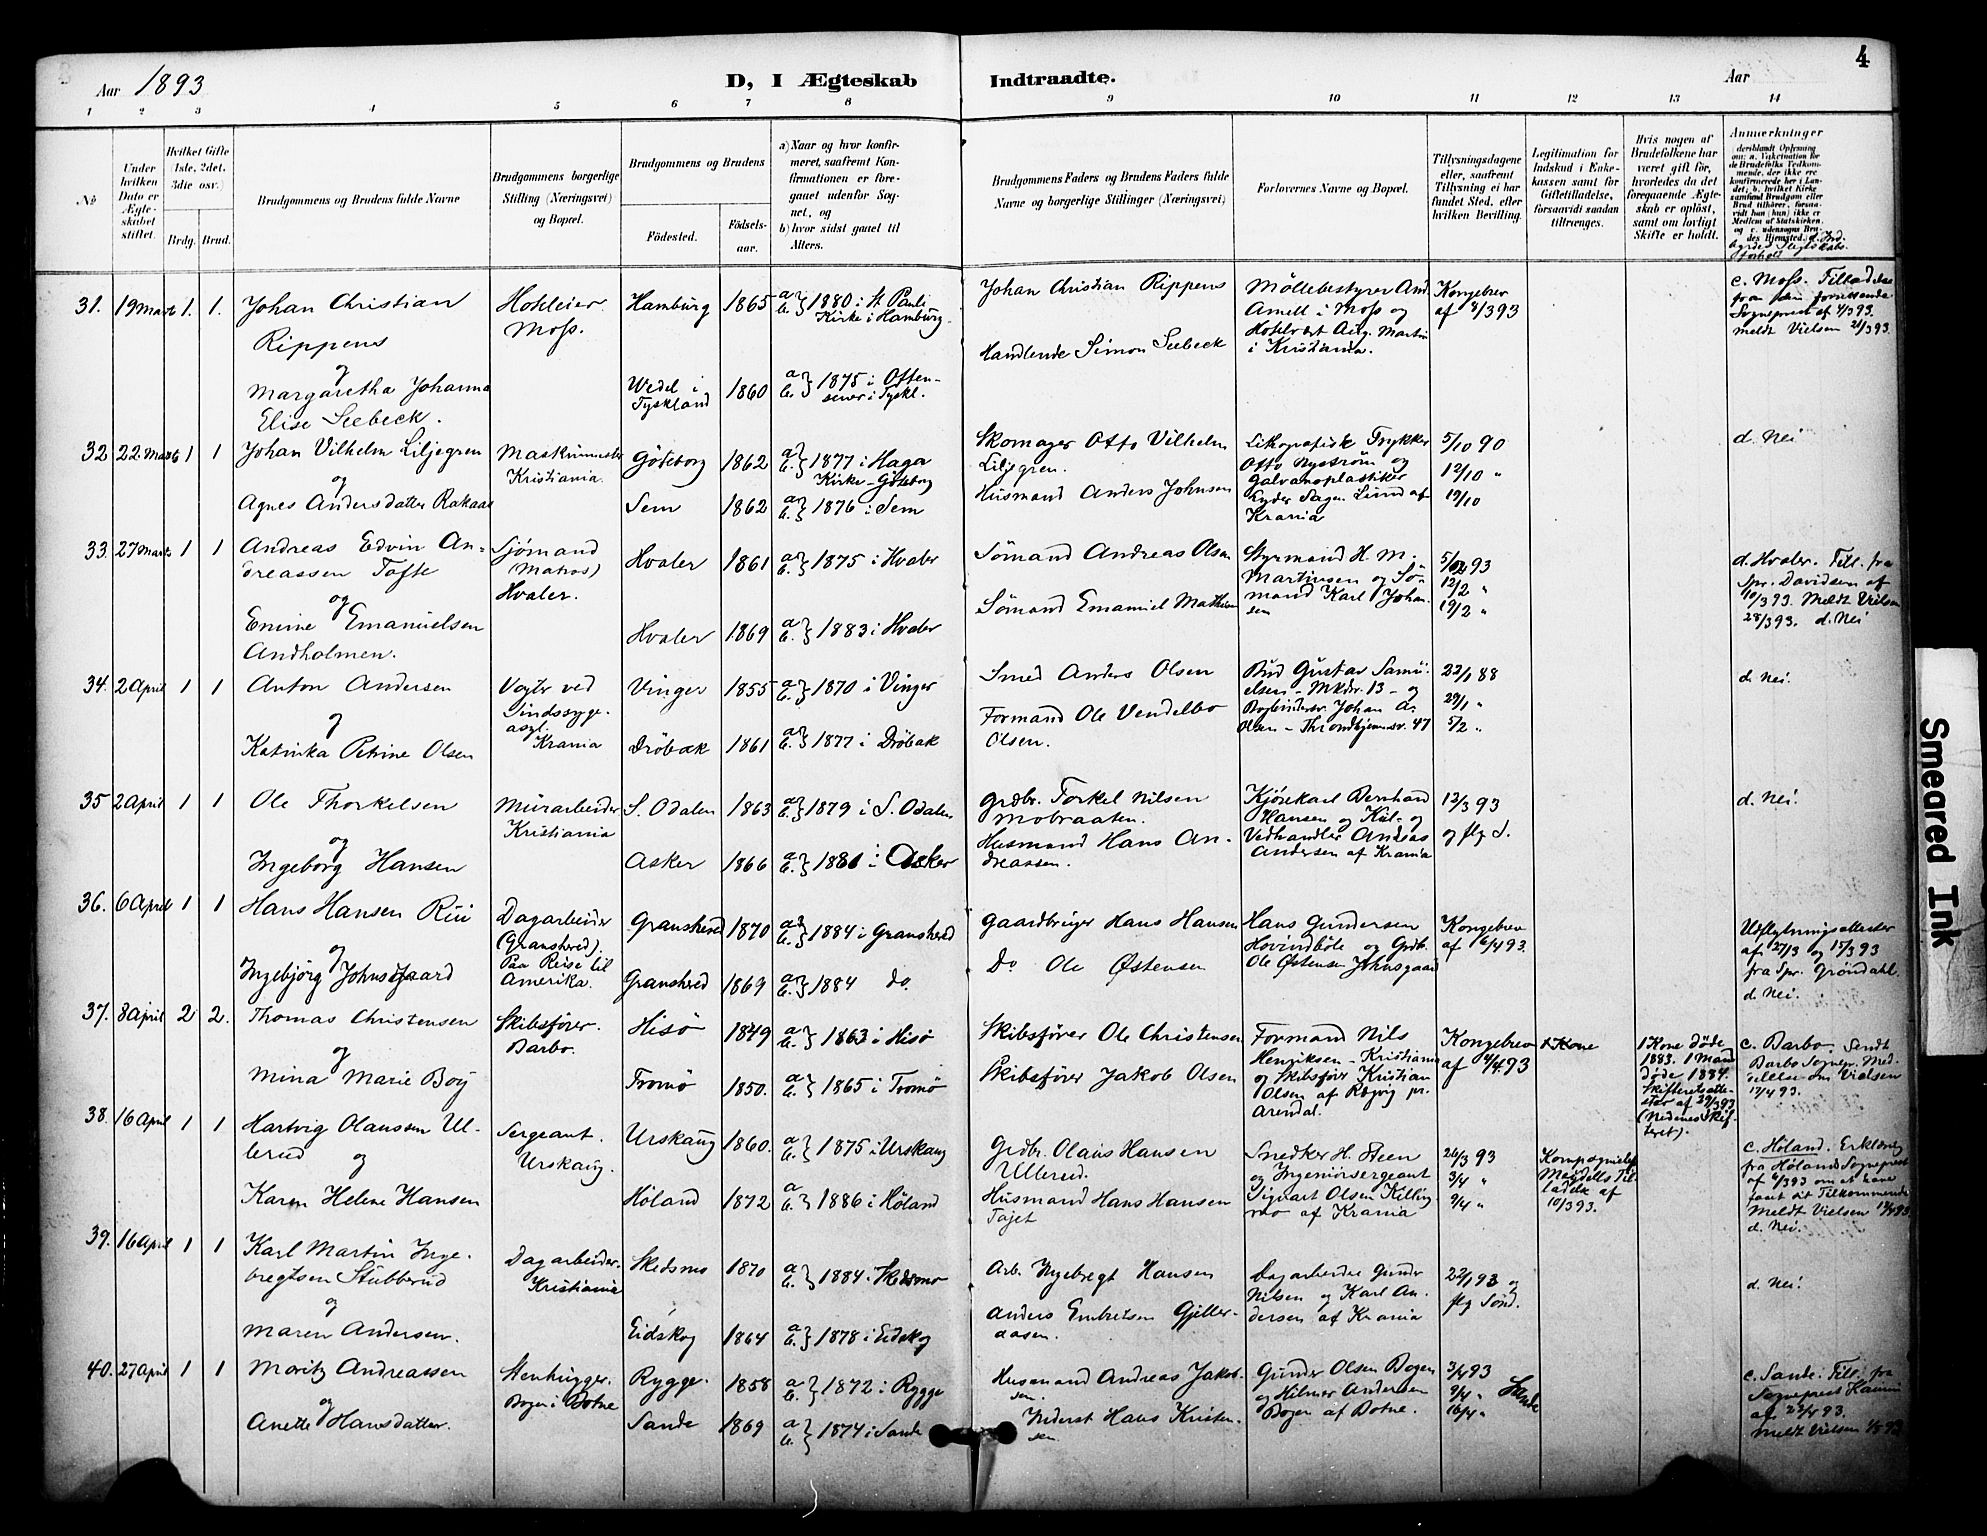 4
Aar 1893
D, I Ægteskab Indtraadte.
Aar
1 2 3 4 5 6 7 8 9 10 11 12 13 14
No
Under hvilken Dato er Ægteskabet stiftet.
Hvilket Gifte (1ste, 2det, 3die osv.)
Brdg. Brud.
Brudgommens og Brudens fulde Navne
Brudgommens borgerlige Stilling (Næringsvei) og Bopæl.
Brudgommens og Brudens
Fødested.
Fødselsaar.
a) Naar og hvor konfirmeret, saafremt Konfirmationen er foregaaet udenfor Sognet, og
b) hvor sidst gaaet til Alters.
Brudgommens Faders og Brudens Faders fulde Navne og borgerlige Stillinger (Næringsvei)
Forlovernes Navne og Bopæl.
Tillysningsdagene eller, saafremt Tillysning ei har fundet Sted, efter hvilken Bevilling.
Legitimation for Indskud i Enkekassen samt for Giftetilladelse, forsaavidt saadan tiltrænges.
Hvis nogen af Brudefolkene har været gift før, hvorledes da det foregaaende Ægteskab er opløst, samt om lovligt Skifte er holdt.
Anmærkninger
31. 19 Marts 1. 1.
Johan Christian
Rippens
og
Margaretha Johanna
Elise Seebeck.
Hoteleier
Moss.
Hamburg 1865 a b } 1880 i St Pauli
Kirke i Hamburg.
Wedel i
Tyskland 1860 a b } 1875 i Otten-
sener i Tyskl.
Johan Christian Rippens
Handlende Simon Seebeck
Möllebestyrer And
Arnell i Moss og
Hotelvert Aug. Martin
i Kristiania.
Kongebrev
af 4/3 93
c. Moss. Tilladelse
Sognepræst af 4/3 93.
meldt Vielsen 21/3 93.
32 22 Marts 1 1
Johan Vilhelm Liljegren
og
Agnes Andersdatter Rakaas
Maskinmester
Kristiania.
Göteborg 1862 a b } 1877 i Haga
Kirke - Göteborg
Sem 1862 a b } 1876 i Sem
Skomager Otto Vilhelm
Liljegren.
Husmand Anders Johnsen
Lithografisk Trykker
Otto Nyström og
Galvanoplastiker
Lund af
Krania
5/10 90
12/10 "
19/10
d. Nei
33. 27 Marts 1 1
Andreas Edvin An-
dreassen Tofte
og
Emine Emanuelsen
Andholmen.
Sjömand
(Matros)
Hvaler.
Hvaler 1861 a b } 1875 i Hvaler
Hvaler 1869 a b } 1883 i Hvaler
Sömand Andreas Olsen
Sömand Emanuel Mathisen
Styrmand H. M.
Martinsen og Sö-
mand Karl Johan-
sen
5/2 93
12/2 "
19/2 "
d. Hvaler. Till. fra
Spr. Davidsen af
10/3 93. Meldt Vielsen
28/3 93. d. Nei
34. 2 April 1 1
Anton Andersen
og
Katinka Petrine Olsen
Vogter ved
Sindssyge-
asyl.
Krania
Vinger 1855 a b } 1870 i Vinger
Dröbak 1861 a b } 1877 i Dröbak
Smed Anders Olsen
Formand Ole Vendelbo
Olsen.
Bud Gustav Samu-
elsen - Mkdv. 13 - og
Bogbindersv. Johan A.
Olsen - Throndhjemsv. 47
22/1 88
29/1 "
5/2 "
d. Nei.
35 2 April 1 1
Ole Thorkelsen
og
Ingeborg Hansen
Murarbeider
Kristiania
S. Odalen 1863 a b } 1879 i S. Odalen
Asker 1866 a b } 1881 i Asker
Grdbr. Torkel Nilsen
Mobraaten.
Husmand Hans An-
dreassen.
Kjörekarl Bernhard
Hansen og Kul- og
Vedhandler Andreas
Andersen af Krania
12/3 93
og flg S.
d. Nei.
36. 6 April 1 1
Hans Hansen Rui
og
Ingebjörg Johnsgaard
Dagarbeider
(Gransherred).
Paa Reise til
Amerika.
Gransherred 1870 a b } 1884 i Gransherred
Gransherred 1869 a b } 1884 do.
Gaardbruger Hans Hansen
Do Ole Østensen
Hans Gundersen
Hovindböle og Grdb.
Ole Østensen Johnsgaard
Kongebrev
af 6/4 93.
Udflytningsattester
af 27/3 og 15/3 93
fra Spr. Gröndahl.
d. Nei.
37. 8 April 2 2.
Thomas Christensen
og
Mina Marie Boij
Skibsförer.
Barbo.
Hisö 1849 a b } 1863 i Hisö
Tromö 1850. a b } 1865 i Tromö
Skibsförer Ole Christensen
Skibsförer Jakob Olsen
Formand Nils
Henriksen - Kristiania
og Skibsförer Kristian
Olsen af Rögvig pr.
Arendal.
Kongebrev
af 4/4 93
1 Kone
1 Kone döde
1883. 1 Mand
döde 1884.
Skifteretsatte-
ster af 29/3 93
(Nedenes Skif-
teret).
c. Barbo. Sendt
Barbo Sognepr. Med-
delelse om Vielsen
17/4 93.
38. 16 April 1 1
Hartvig Olaussen Ul-
lerud
og
Karen Helene Hansen
Sergeant.
Urskaug.
Urskaug 1860. a b } 1875 i Urskaug
Höland 1872 a b } 1886 i Höland
Grdbr. Olaus Hansen
Ullerud.
Husmand Hans Hansen
Tajet
Snedker H. Steen
og Ingeniörsergeant
Sigvart Olsen Killing-
mo af Krania
26/3 93
3/4 "
9/4 "
Kompagnichef
Til-
ladelse af
10/3 93.
c. Höland. Erklæring
fra Hölands Sognepræst
af 6/3 93 om at have
faaet sit Tilkommende
Meldt Vielsen 17/4 93.
d. Nei.
39. 16 April 1 1
Karl Martin Inge-
bregtsen Stubberud
og
Maren Andersen.
Dagarbeider.
Kristiania
Skedsmo 1870 a b } 1884 i Skedsmo
Eidskog 1864 a b } 1878 i Eidskog
Arb. Ingebregt Hansen
Anders Embretsen Gjeller-
aasen.
Dagarbeider Gunder
Nilsen og Karl An-
dersen af Krania
22/1 93 og
flg Sönd.
d. Nei.
40. 27 April 1 1
Moritz Andreassen
og
Anette Hansdatter.
Stenhugger.
Bogen i Botne
Rygge. 1858 a b } 1872 i Rygge
Sande 1869 a b } 1874 i Sande
Husmand Andreas Jakob-
sen.
Inderst Hans Kristen-
sen.
Gunder Olsen Bogen
og Hilmer Andersen
Bogen af Botne.
3/4 93
9/4 "
16/4 "
Sande
c. Sande. Till. fra
Sognepræst
af 22/4 93.
Meldt Vielsen 1/5 93
Smeared Ink